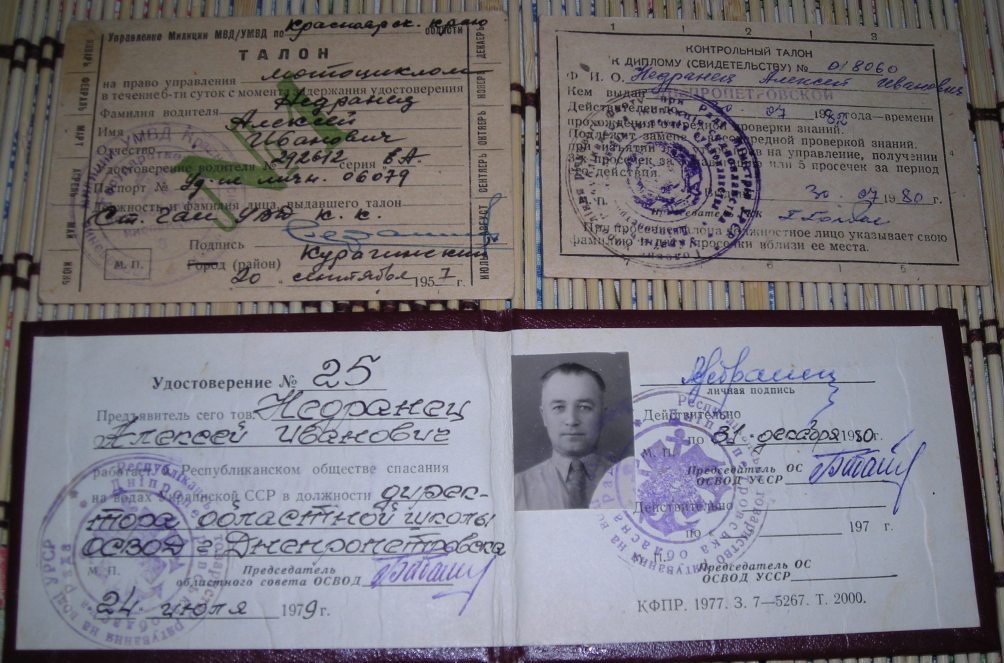 Управление Милиции МВД/УМВД по Красноярск. краю области
ТАЛОН
на право управления мотоциклом
в течение 6-ти суток с момента задержания удостоверения
Фамилия водителя Недранец
Имя Алексей
Отчество Иванович
Удостоверение водителя № 292612 серия ВА.
Паспорт № Уд-ие личн. 06079
Должность и фамилия лица, выдавшего талон
Ст. Гаи УВД К. К.
Подпись
М. П. Город (район) Курагинский
20 сентября 1957 г.
ЯНВАРЬ ФЕВРАЛЬ МАРТ АПРЕЛЬ МАЙ ИЮНЬ
ИЮЛЬ АВГУСТ СЕНТЯБРЬ ОКТЯБРЬ НОЯБРЬ ДЕКАБРЬ
1 2 3
КОНТРОЛЬНЫЙ ТАЛОН
К ДИПЛОМУ (СВИДЕТЕЛЬСТВУ) № 018060
Ф. И. О. Недранец Алексей Иванович
Кем выдан ДНЕПРОПЕТРОВСКОЙ
Действителен до 30. 07 1982 года—времени
прохождения очередной проверки знаний.
Подлежит замене при очередной проверке знаний.
при изъятии на управление, получении
просечек за или 5 просечек за период
действия.
М. П. 30. 07 1980 г.
Председатель
При просечке талона должностное лицо указывает свою
фамилию и дату просечки вблизи ее места.
Удостоверение № 25
Предъявитель сего тов. Недранец
Алексей Иванович
работает в Республиканском обществе спасания
на водах Украинской ССР в должности дирек-
тора областной школы
ОСВОД г. Днепропетровска
М. П. Председатель
областного совета ОСВОД
24 июля 1979 г.
личная подпись
Действительно
по 31 декабря 1980 г.
М. П.
Председатель ОС
ОСВОД УССР
Действительно
по 197 г.
М. П.
Председатель ОС
ОСВОД УССР
КФПР. 1977. З. 7—5267. Т. 2000.